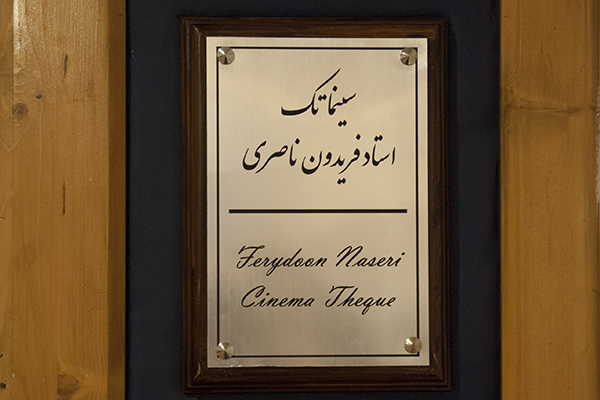 سینما تک
استاد فریدون ناصری
Ferydoon Naseri
Cinema Theque